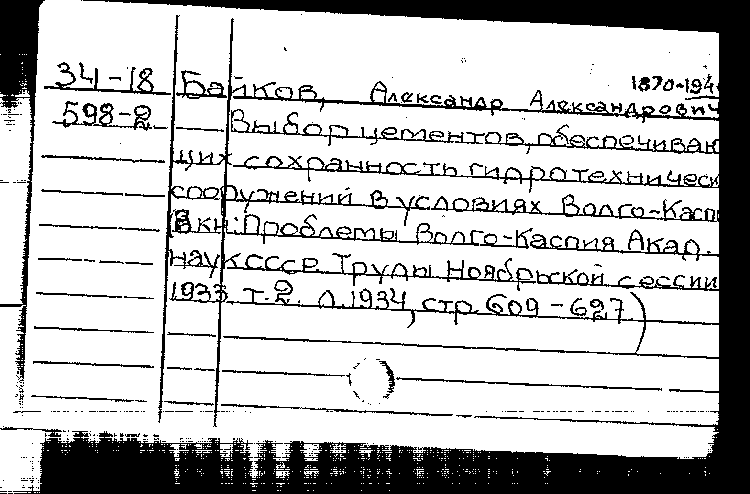 1870-194
34-18 Байков, Александр Александрович
598-2 Выбор цементов, обеспечиваю
щих сохранность гидротехническ
сооружений в условиях Волго-Касп
(В кн: Проблемы Волго-Каспия Акад.
наук СССР. Труды Ноябрьской сессии
1933 т. 2. Л. 1934, стр. 609-627)